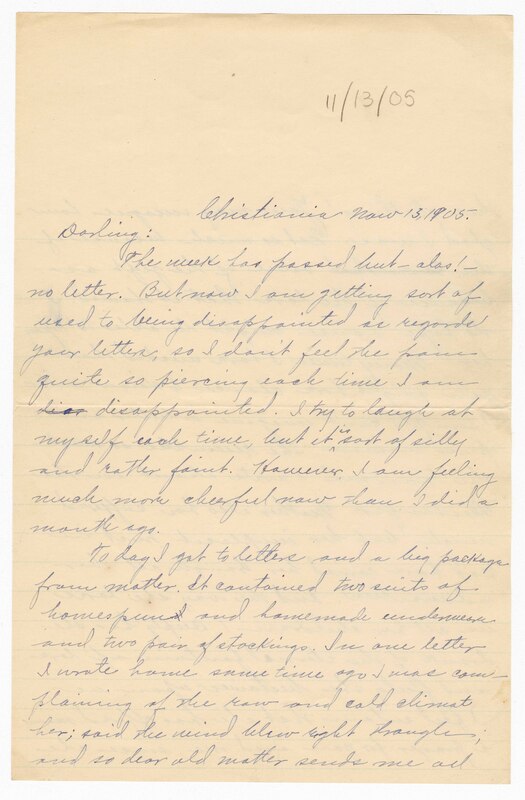 11/13/05
Christiania Nov 13, 1905.
Darling:
The week has passed but - alas! -
no letter. But now I am getting sort of
used to being disappointed as regards
your letters, so I don't feel the pain
quite so piercing each time I am
disappointed. I try to laugh at
myself each time, but it's sort of silly
and rather faint. However, I am feeling
much more cheerful now than I did a
month ago.
To day I got to letters and a big package
from mother. It contained two suits of
homespun and homemade underwear
and two pair of stockings. In one letter
I wrote home some time ago I was com-
plaining of the raw and cold climat
her; said the wind blew right through;
and so dear old mother sends me all